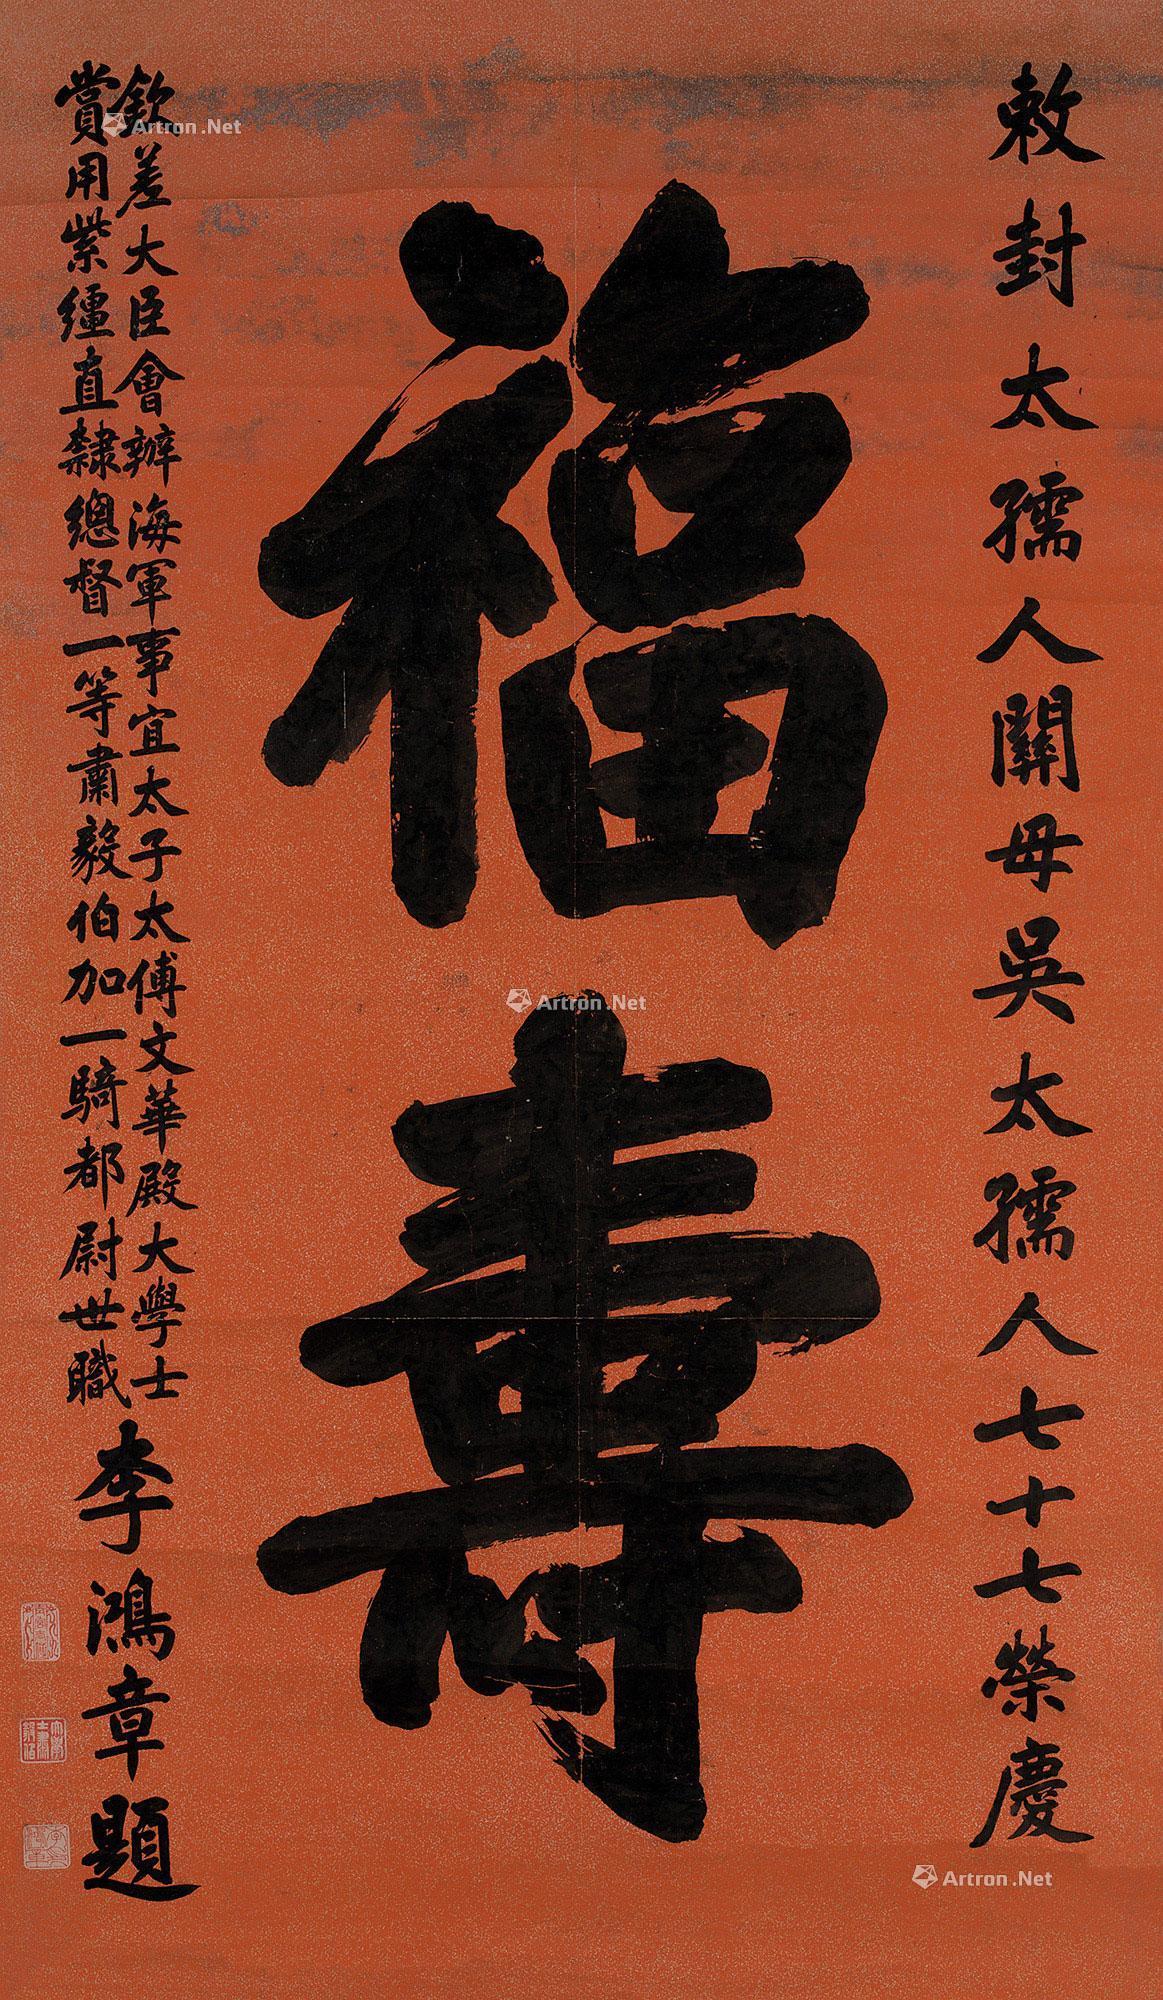 敕封太孺人關母吳太孺人七十七榮慶
福壽
欽差大臣會辦海軍事宜太子太傅文華殿大學士
賞用紫繮直隸總督一等肅毅伯加一騎都尉世職
李鴻章題
Artron.Net
Artron.Net
Artron.Net